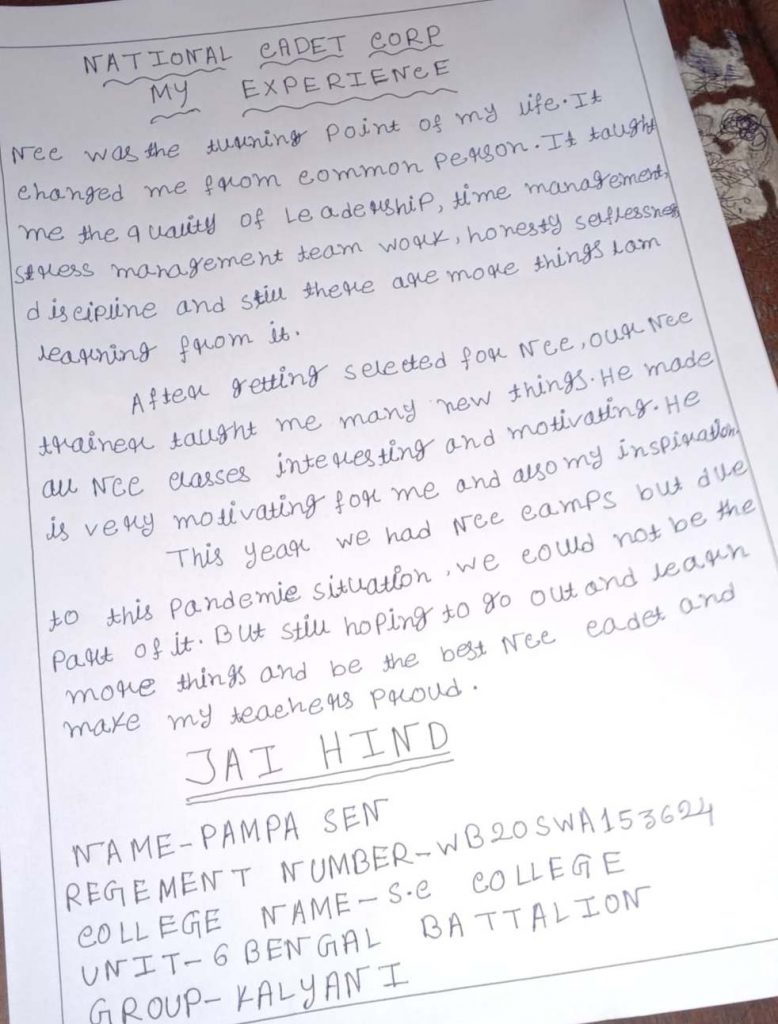 NATIONAL CADET CORP
MY EXPERIENCE
Ncc was the turning point of my life. It
changed me from common person. It taught
me the quality of Leadership, time management,
stress management team work, honesty selflessness
discipline and still there are more things I am
learning from it.
After getting selected for Ncc, our Ncc
trainer taught me many new things. He made
all NCC classes interesting and motivating. He
is very motivating for me and also my inspiration.
This year we had Ncc camps but due
to this pandemic situation, we could not be the
part of it. But still hoping to go out and learn
more things and be the best Ncc cadet and
make my teachers proud.
JAI HIND
NAME-PAMPA SEN
REGEMENT NUMBER-WB20SWA153624
COLLEGE NAME-S.C COLLEGE
UNIT-6 BENGAL BATTALION
GROUP-KALYANI